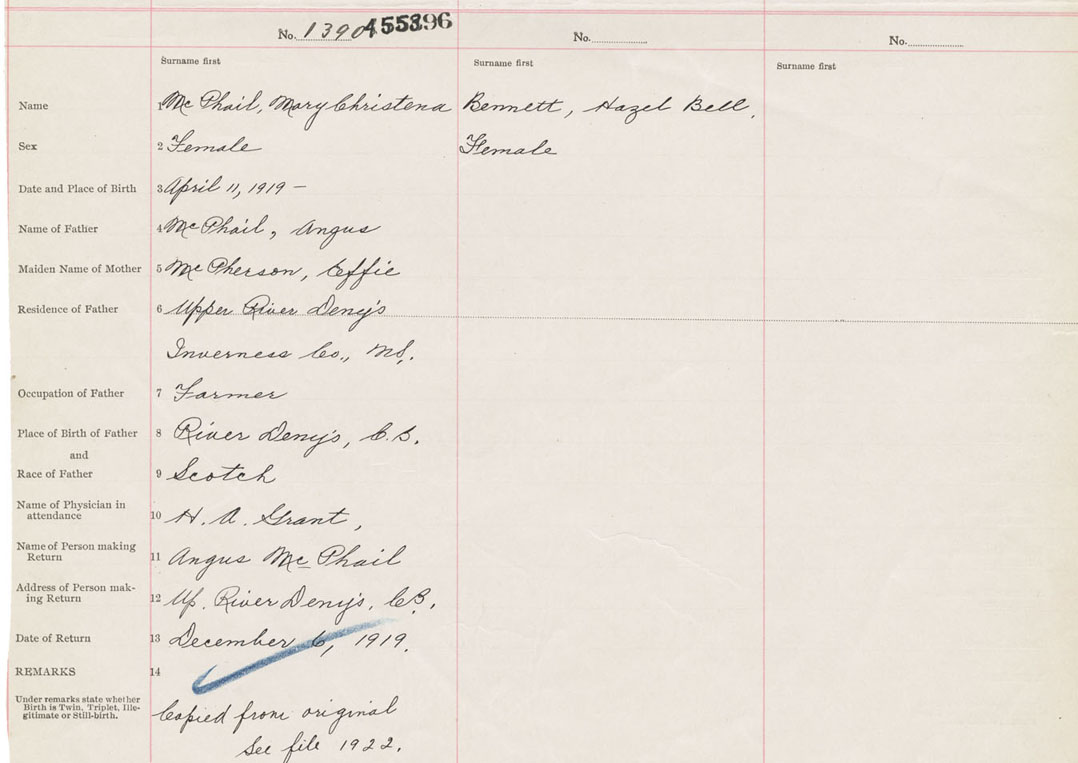 No. 1390 455396 No. No.
Surname first Surname first Surname first
Name 1 McPhail, Mary Christena Bennett, Hazel Bell.
Sex 2 Female Female
Date and Place of Birth 3 April 11, 1919 –
Name of Father 4 McPhail, Angus
Maiden Name of Mother 5 McPherson, Effie
Residence of Father 6 Upper River Deny's
Inverness Co., NS.
Occupation of Father 7 Farmer
Place of Birth of Father 8 River Deny's, C.B.
and
Race of Father 9 Scotch
Name of Physician in
attendance 10 H. A. Grant,
Name of Person making
Return 11 Angus McPhail
Address of Person mak-
ing Return 12 Up. River Deny's, C.B.
Date of Return 13 December 6, 1919.
REMARKS 14
Under remarks state whether
Birth is Twin, Triplet, Ille-
gitimate or Still-birth.
Copied from original
See file 1922.